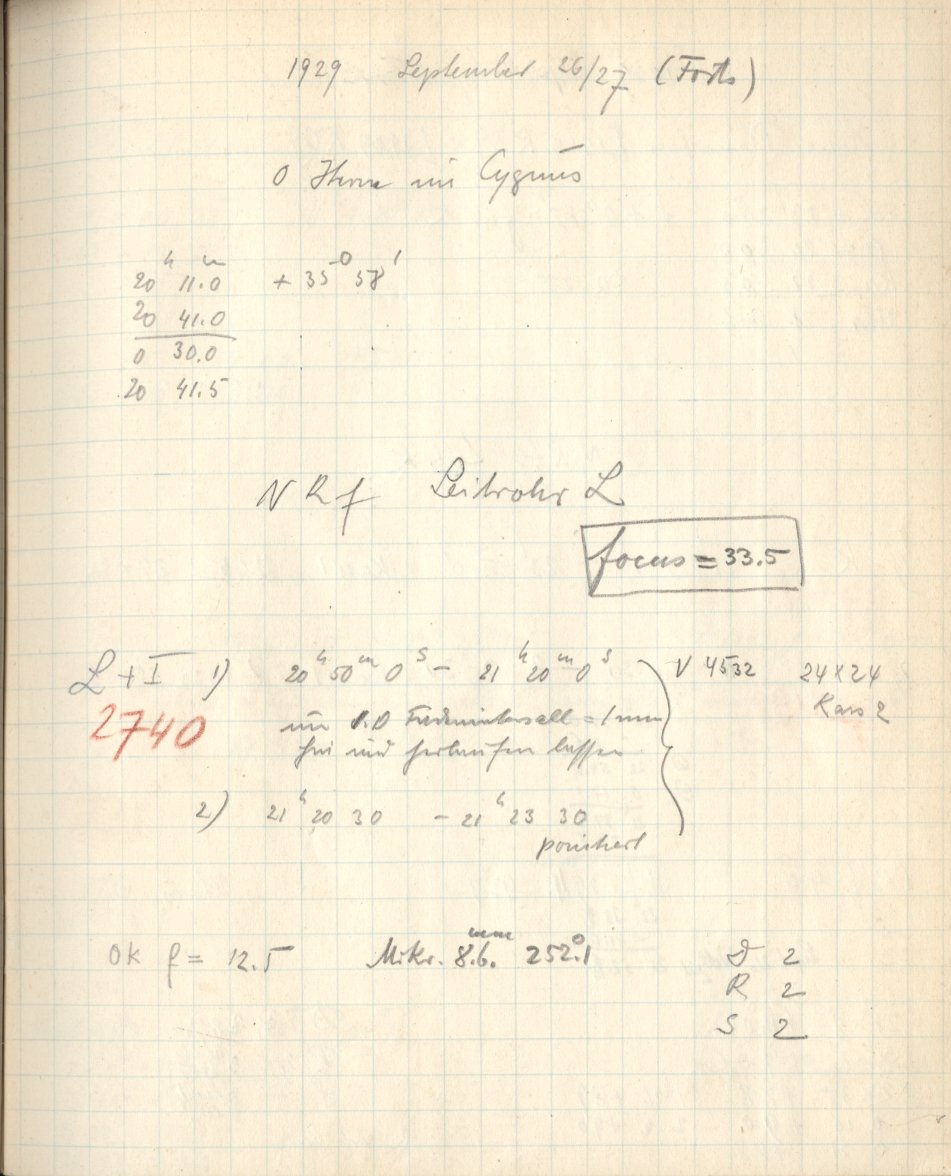 1929 September 26/27 (Forts)
O Sterne im Cygnus
20ʰ 11.0ᵐ + 35° 58'
20 41.0
0 30.0
20 41.5
N R f Leitrohr L
focus = 33.5
L + I 1) 20ʰ 50ᵐ 0ˢ – 21ʰ 20ᵐ 0ˢ V 4532 24x24
Kass 2
2740
im Fadenintervall = 1 mm
hin und herlaufen lassen
2) 21ʰ 20 30 – 21ʰ 23 30
pointiert
Ok f = 12.5 Mikr. 8.6.ᵐᵐ 252.°1 D 2
R 2
S 2